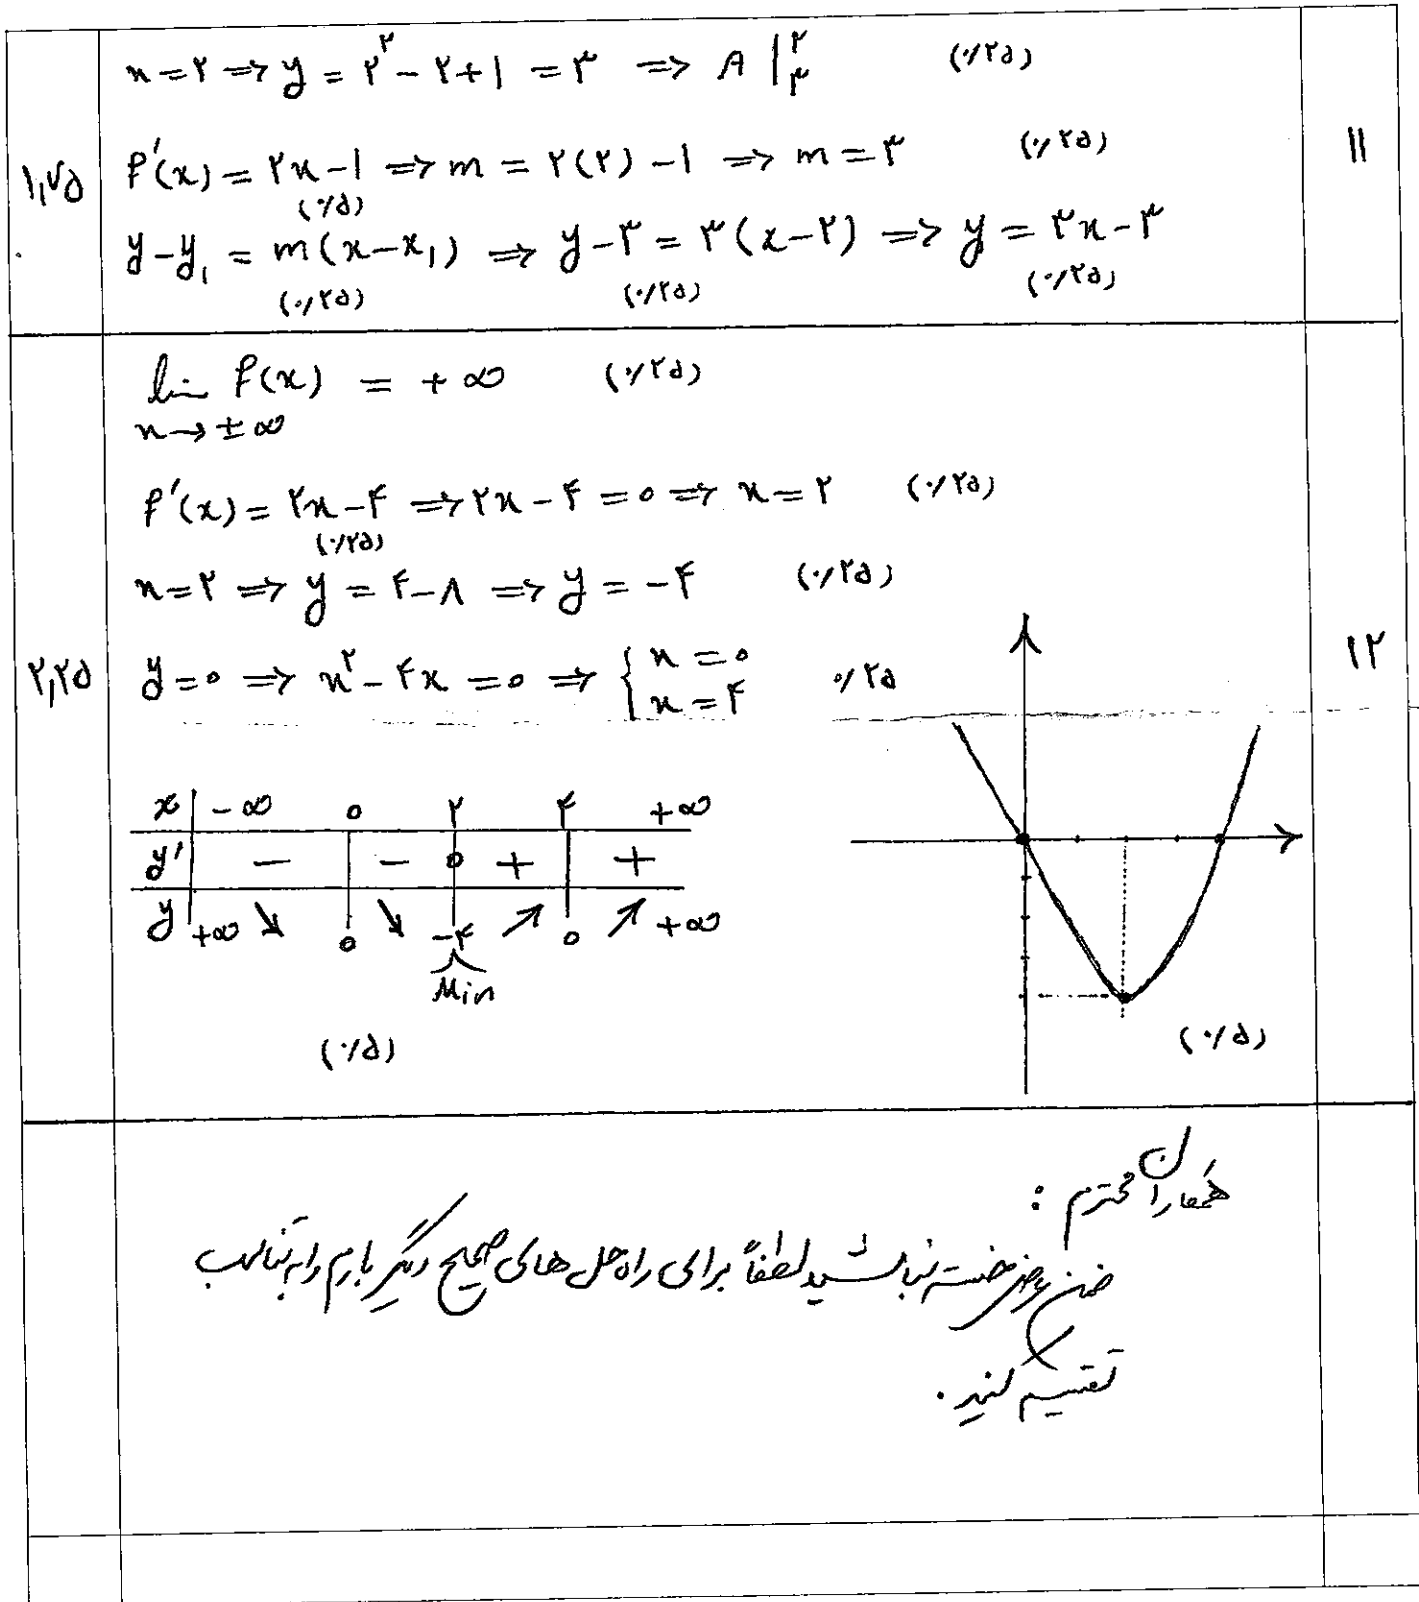 ۱۱
x=۲ ⇒ y = ۲^۲ - ۲+۱ = ۳ ⇒ A |۲ ۳ (۰/۲۵)
f'(x) = ۲x-۱ ⇒ m = ۲(۲) -۱ ⇒ m = ۳ (۰/۲۵)
(۰/۵)
۱,۷۵
y-y₁ = m(x-x₁) ⇒ y-۳ = ۳(x-۲) ⇒ y = ۳x-۳
(۰/۲۵) (۰/۲۵) (۰/۲۵)
۱۲
lim f(x) = +∞ (۰/۲۵)
x→±∞
f'(x) = ۲x-۴ ⇒ ۲x-۴ = ۰ ⇒ x=۲ (۰/۲۵)
(۰/۲۵)
x=۲ ⇒ y = ۴-۸ ⇒ y = -۴ (۰/۲۵)
y=۰ ⇒ x^۲-۴x = ۰ ⇒ { x=۰ ۰/۲۵
x=۴
۲,۲۵
x | -∞ ۰ ۲ ۴ +∞
y' | - - ۰ + +
y | +∞ ↘ ۰ ↘ -۴ ↗ ۰ ↗ +∞
Min
(۰/۵) (۰/۵)
همکاران محترم :
ضمن عرض خسته نباشید لطفاً برای راه حل های صحیح دیگر بارم را به تناسب
تقسیم کنید .